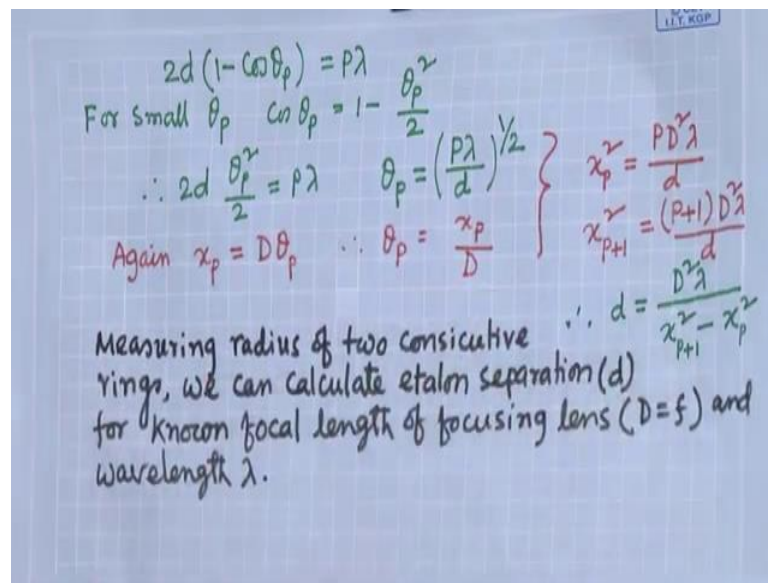 I.I.T. KGP
2d (1 - Cosθp) = Pλ
For small θp Cos θp = 1 - θp²/2
∴ 2d θp²/2 = Pλ θp = (Pλ/d)^1/2 } xp² = PD²λ/d
Again xp = Dθp ∴ θp = xp/D x²p+1 = (P+1)D²λ/d
∴ d = D²λ/(x²p+1 - xp²)
Measuring radius of two consicutive
rings, we can calculate etalon separation (d)
for known focal length of focusing lens (D=f) and
wavelength λ.